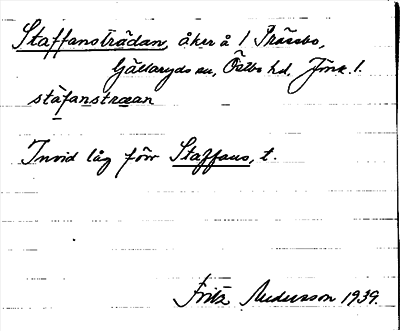 Staffansträdan, åker å 1 Prässbo,
Gällaryds sn, Östbo hd, Jönk. l.
stafanstræan
Invid låg förr Staffans, t.
Fritz Andersson 1939.